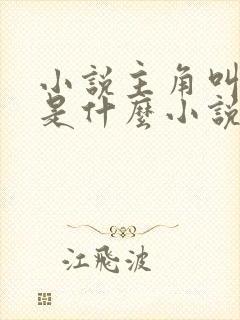 小說主角叫
是什麼小說
江飛波